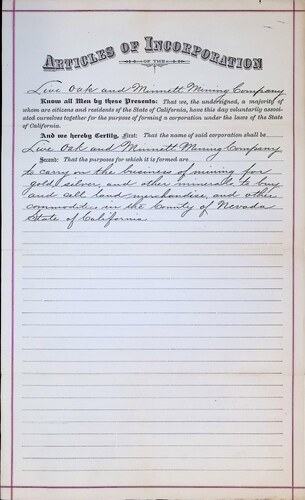 ARTICLES OF INCORPORATION
OF THE
Live Oak and Minnett Mining Company
Know all Men by these Presents: That we, the undersigned, a majority of
whom are citizens and residents of the State of California, have this day voluntarily associ-
ated ourselves together for the purpose of forming a corporation under the laws of the State
of California.
And we hereby Certify, First: That the name of said corporation shall be
Live Oak and Minnett Mining Company
Second: That the purposes for which it is formed are
to carry on the business of mining for
gold, silver, and other minerals, to buy
and sell land, merchandise, and other
commodities in the County of Nevada
State of California